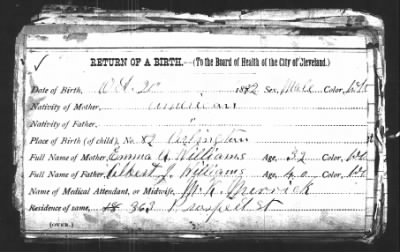 RETURN OF A BIRTH.—(To the Board of Health of the City of Cleveland.)
Date of Birth, Oct. 20 1882 Sex, Male Color, Wh
Nativity of Mother, American
Nativity of Father, "
Place of Birth (of child), No. 82 Arlington
Full Name of Mother, Emma A. Williams Age, 32 Color, Wh
Full Name of Father, Albert J. Williams Age, 40 Color, Wh
Name of Medical Attendant, or Midwife, Merrick
Residence of same, 363 Prospect St
(OVER.)